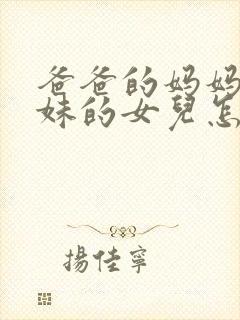 爸爸的妈妈
妹的女兒怎
揚佳寧